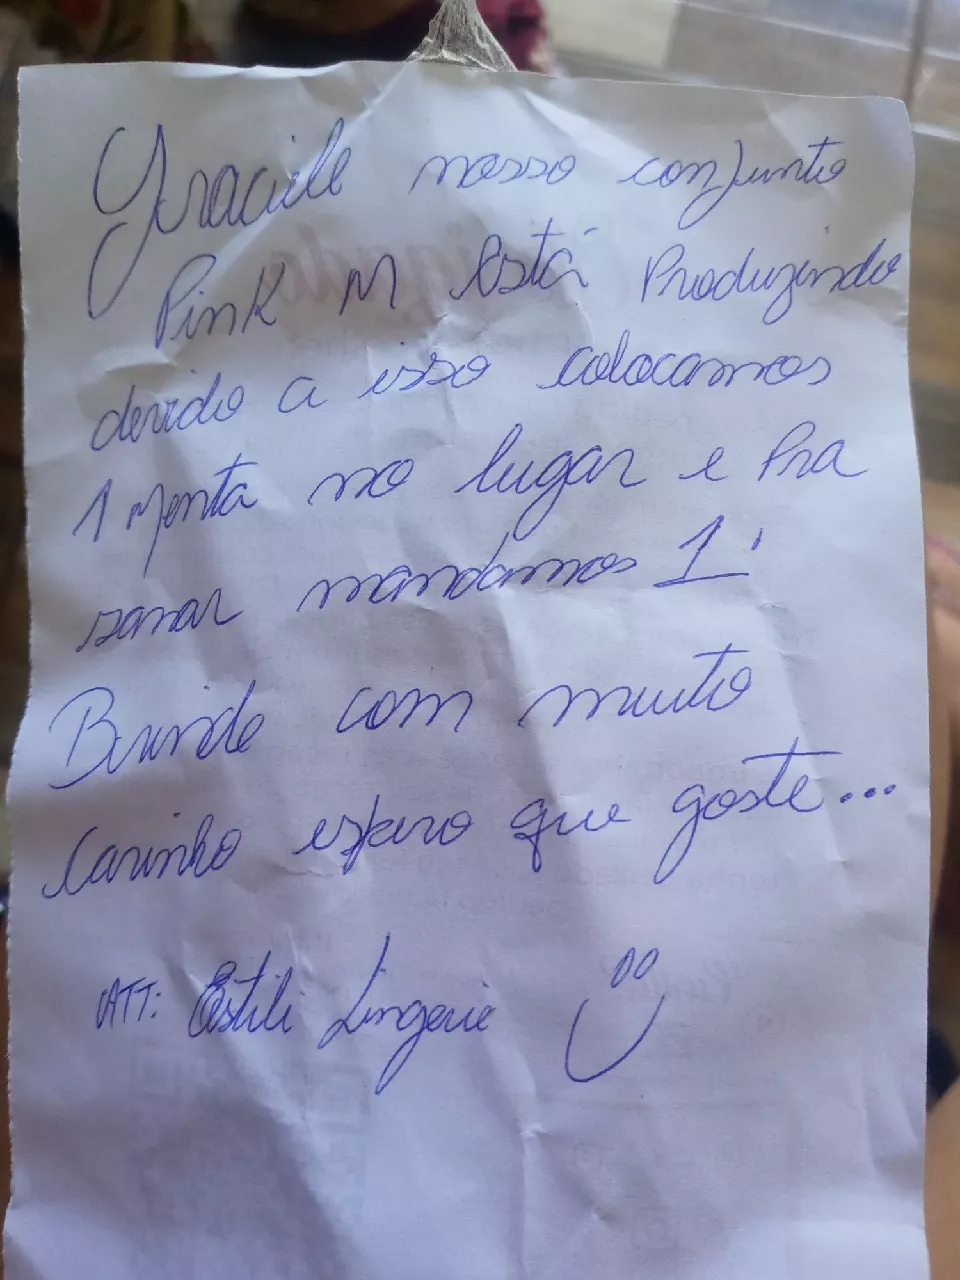 Graciele nosso conjunto
Pink M Está Produzindo
devido a isso colocamos
1 Menta no lugar e Pra
sanar mandamos 1
Brinde com muito
Carinho espero que goste...
ATT: Estili Lingerie